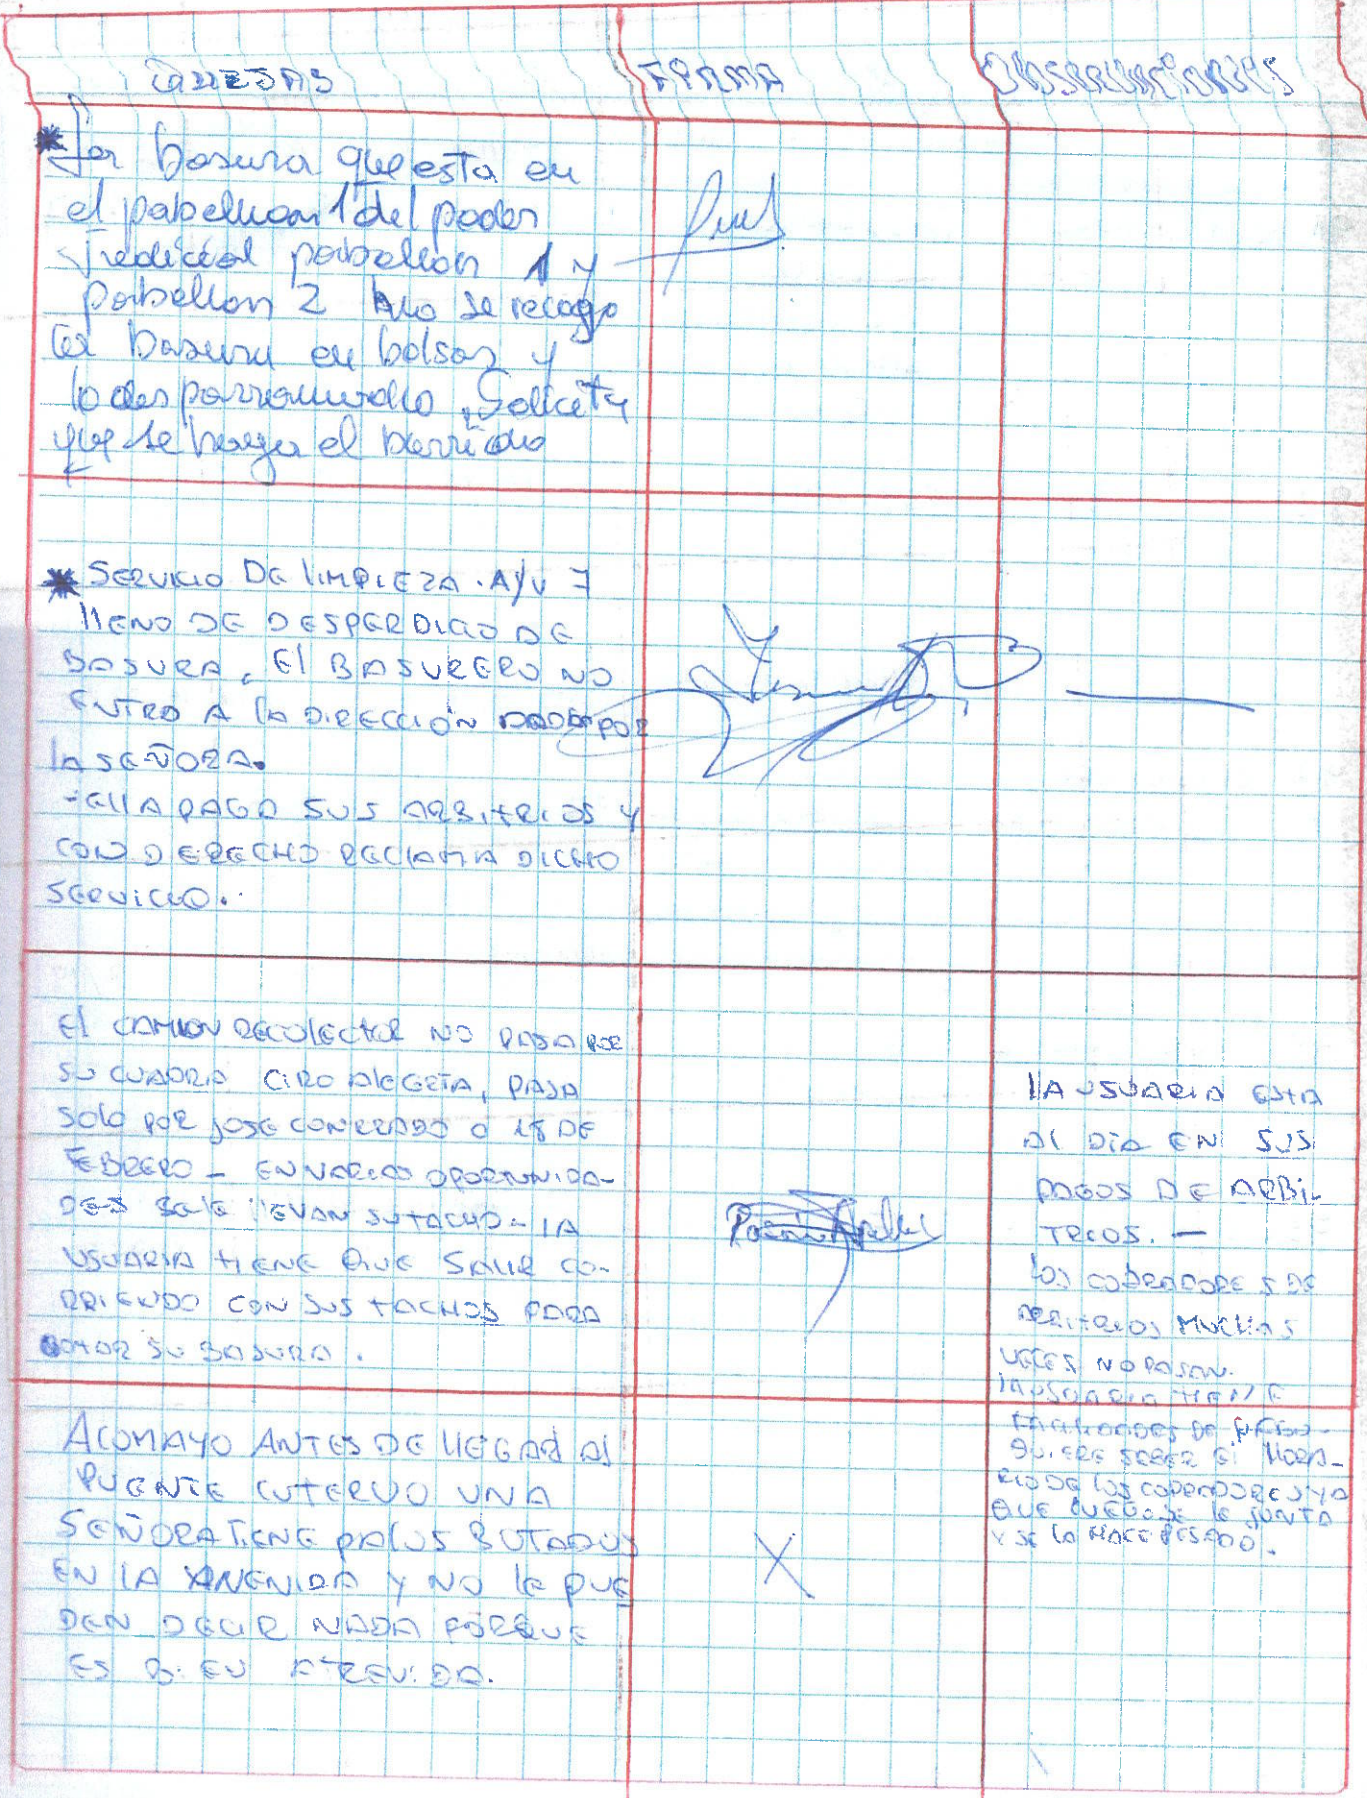 QUEJAS
FIRMA
OBSERVACIONES
* La basura que esta en
el pabellon 1 del poder
Judicial pabellon 1 y
pabellon 2 no se recogo
la basura en bolsas y
lo desparramado, Solicita
que se haga el barrido
* SERVICIO DE LIMPIEZA. A/V 7
LLENO DE DESPERDICIO DE
BASURA, El BASURERO NO
ENTRO A la DIRECCIÓN DADA POR
LA SEÑORA.
- ELLA PAGA SUS ARBITRIOS Y
CON DERECHO RECLAMA DICHO
SERVICIO.
El CAMION RECOLECTOR NO PASA POR
SU CUADRA CIRO ALEGRÍA, PASA
SOLO POR JOSE CONRRADO O 18 DE
FEBRERO - EN VARIAS OPORTUNIDA-
DES SE LE LLEVAN SU TACHO - LA
USUARIA TIENE QUE SALIR CO-
RRIENDO CON SUS TACHOS PARA
BOTAR SU BASURA.
LA USUARIA ESTA
AL DÍA EN SUS
PAGOS DE ARBI-
TRIOS. —
LOS COBRADORES DE
ARBITRIOS MUCHAS
VECES NO PASAN.
LA USUARIA TIENE
FACILIDADES DE PAGO
QUIERE SABER El HORA-
RIO DE LOS COBRADORES YA
QUE LUEGO SE LE JUNTA
Y SE LA HACE PESADO.
ACOMAYO ANTES DE LLEGAR AL
PUENTE CUTERVO UNA
SEÑORA TIENE PALOS BOTADOS
EN LA AVENIDA Y NO LE PUE
DEN DECIR NADA PORQUE
ES BIEN ATREVIDA.
X